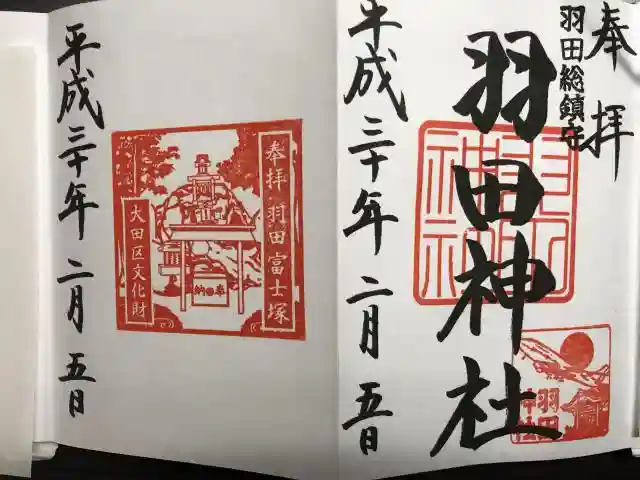 奉拝
羽田総鎮守
羽田神社
羽田神社
羽田神社
平成三十年二月五日
奉拝 羽田富士塚
奉納
大田区文化財
平成三十年二月五日